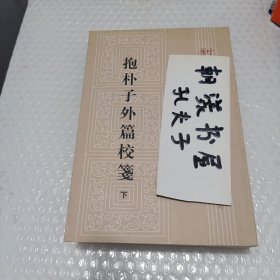 抱朴子外篇校箋
下
新
朝洪书屋
孔夫子